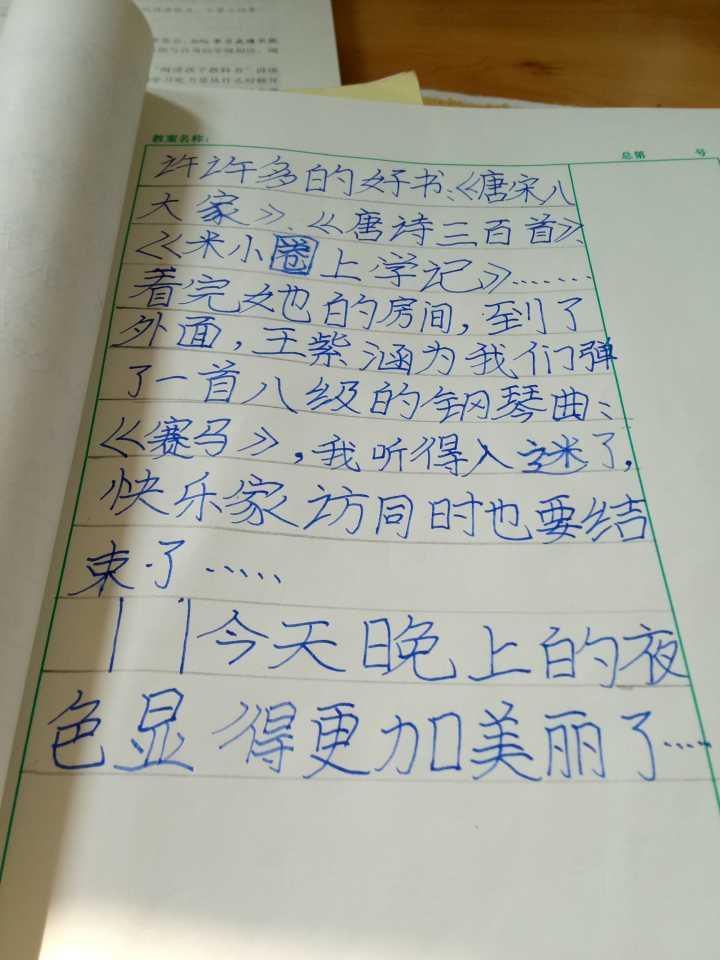 教案名称：
总第 号
许许多的好书:《唐宋八
大家》、《唐诗三百首》、
《米小圈上学记》……
看完她的房间,到了
外面,王紫涵为我们弹
了一首八级的钢琴曲:
《赛马》,我听得入迷了,
快乐家访同时也要结
束了……
今天晚上的夜
色显得更加美丽了……